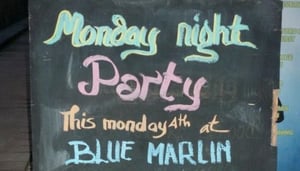 Monday night
Party
This monday 4th at
BLUE MARLIN